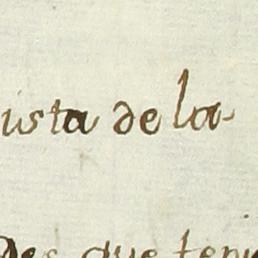 ista de la
des que teni